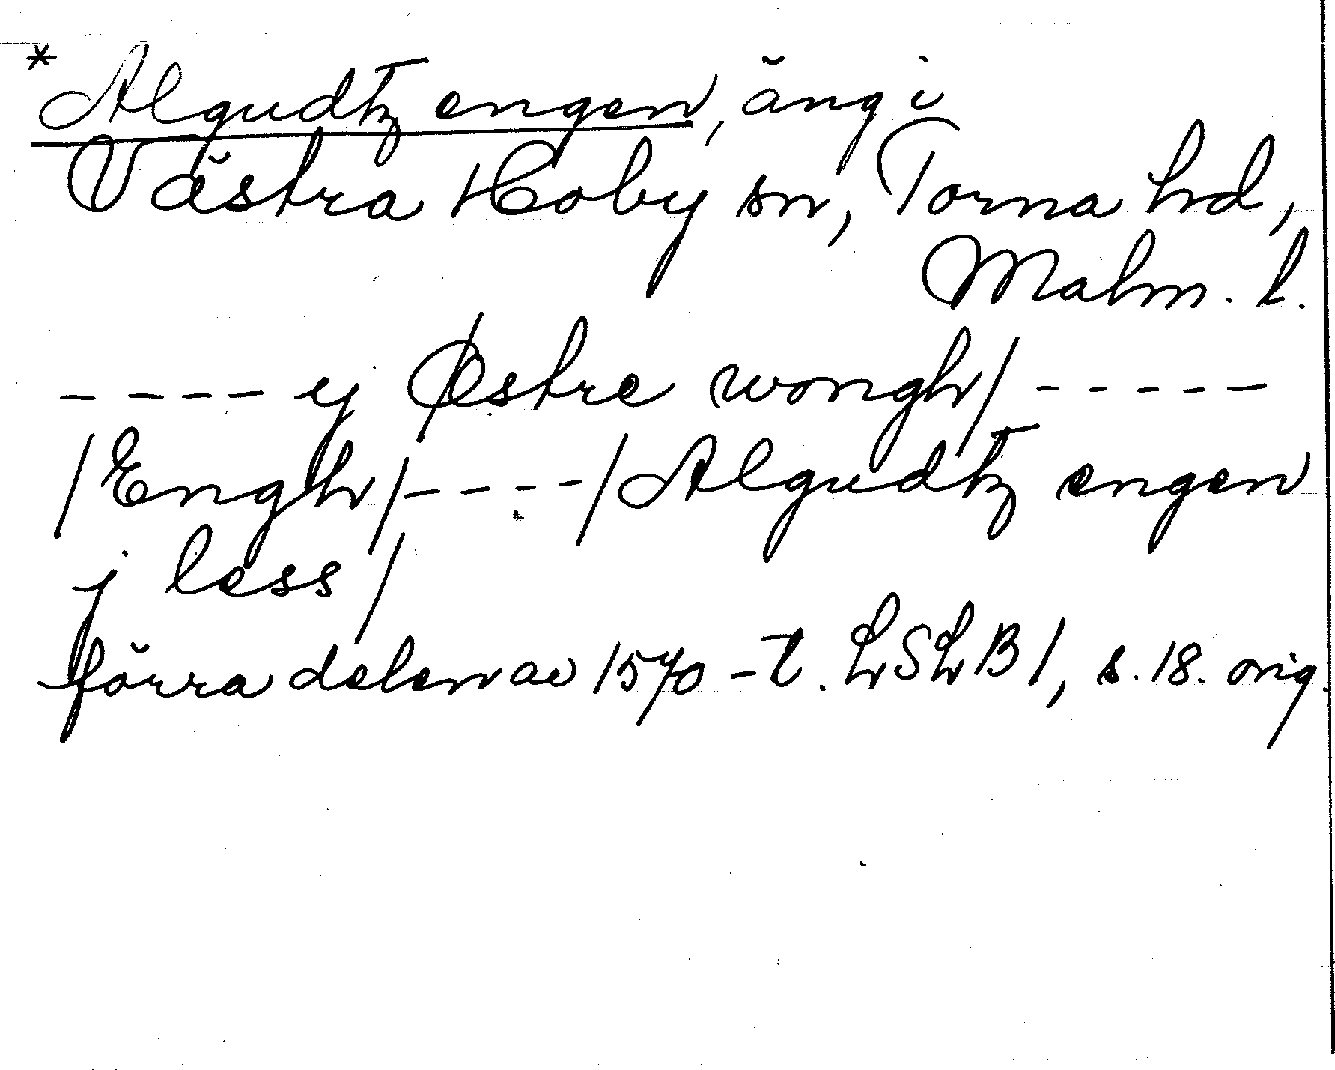 * Algudtz engen, äng i
Västra Hoby sn, Torna hd,
Malm. l.
---- y Østre wongh/ -----
/Engh/----/Algudtz engen
j less/
förra delen av 1570-t. LSLB 1, s. 18. orig.